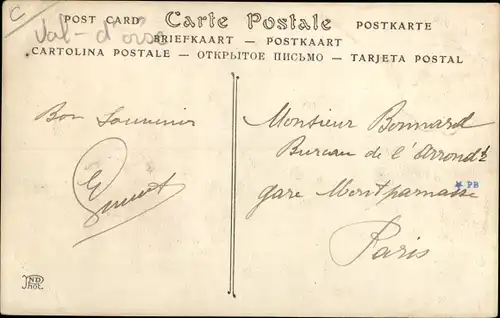 C
POST CARD Carte Postale POSTKARTE
Val-d'oise
BRIEFKAART — POSTKAART
CARTOLINA POSTALE — ОТКРЫТОЕ ПИСЬМО — TARJETA POSTAL
Bon Souvenir
Monsieur Bonnard
Bureau de l'Arrondt
gare Montparnasse
PB
Paris
ND
Phot.